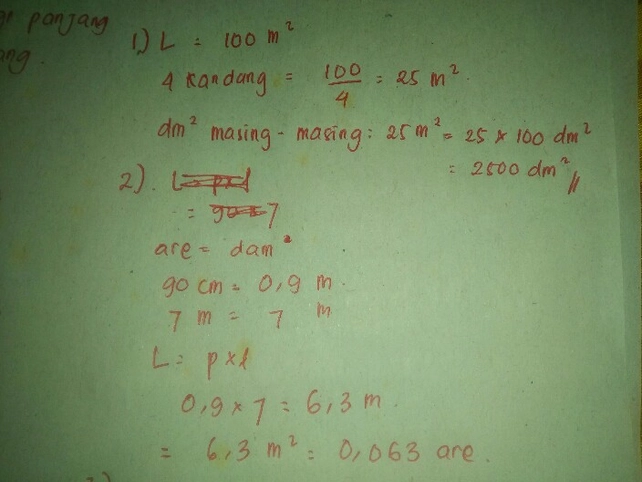 panjang
1) L = 100 m²
4 kandang = 100/4 = 25 m².
dm² masing-masing: 25 m² = 25 x 100 dm²
= 2500 dm² //
2).
= 7
are = dam²
90 cm = 0,9 m.
7 m = 7 m
L = p x l
0,9 x 7 = 6,3 m.
= 6,3 m² = 0,063 are.